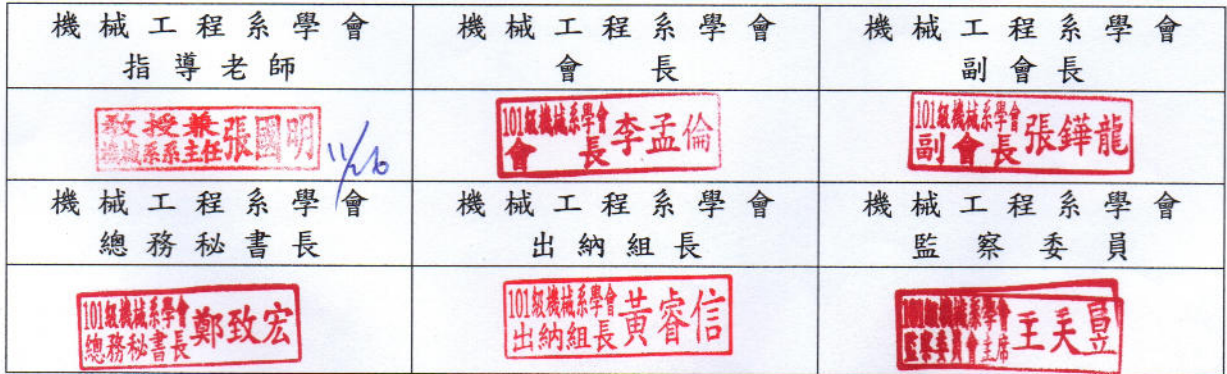 機械工程系學會
指導老師
機械工程系學會
會長
機械工程系學會
副會長
教授兼
機械系系主任
張國明
11/26
101級機械系學會
會長
李孟倫
101級機械系學會
副會長
張鏵龍
機械工程系學會
總務秘書長
機械工程系學會
出納組長
機械工程系學會
監察委員
101級機械系學會
總務秘書長
鄭致宏
101級機械系學會
出納組長
黃睿信
101級機械系學會
監察委員會主席
王